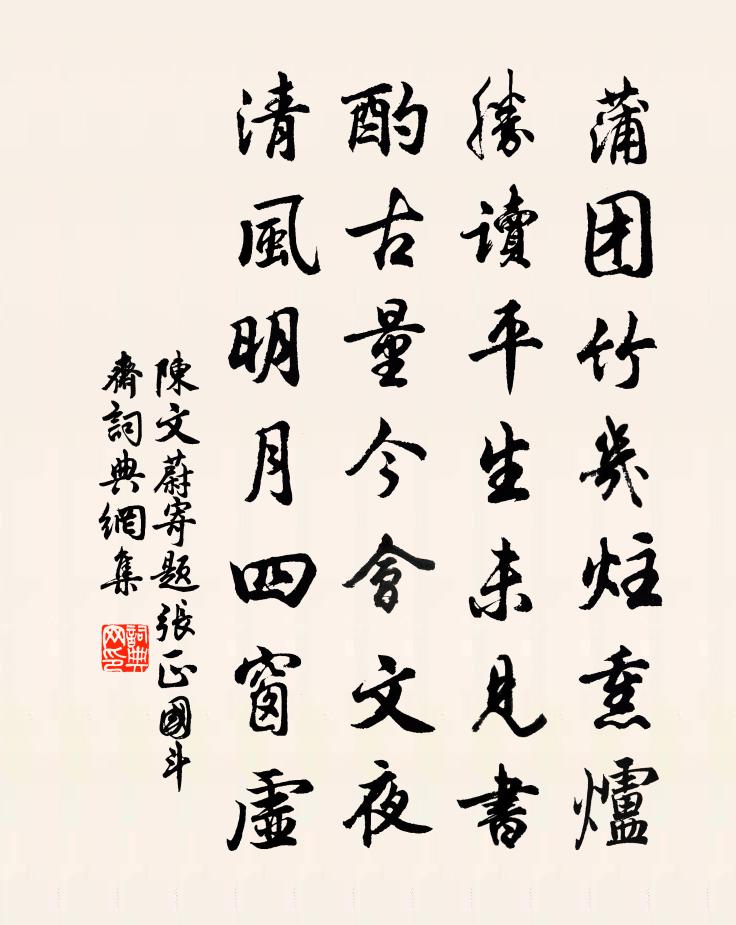 蒲团竹几炷熏爐
勝讀平生未見書
酌古量今會文夜
清風明月四窗虛
陳文蔚寄題張正國斗
齋詞典網集
詞典網印